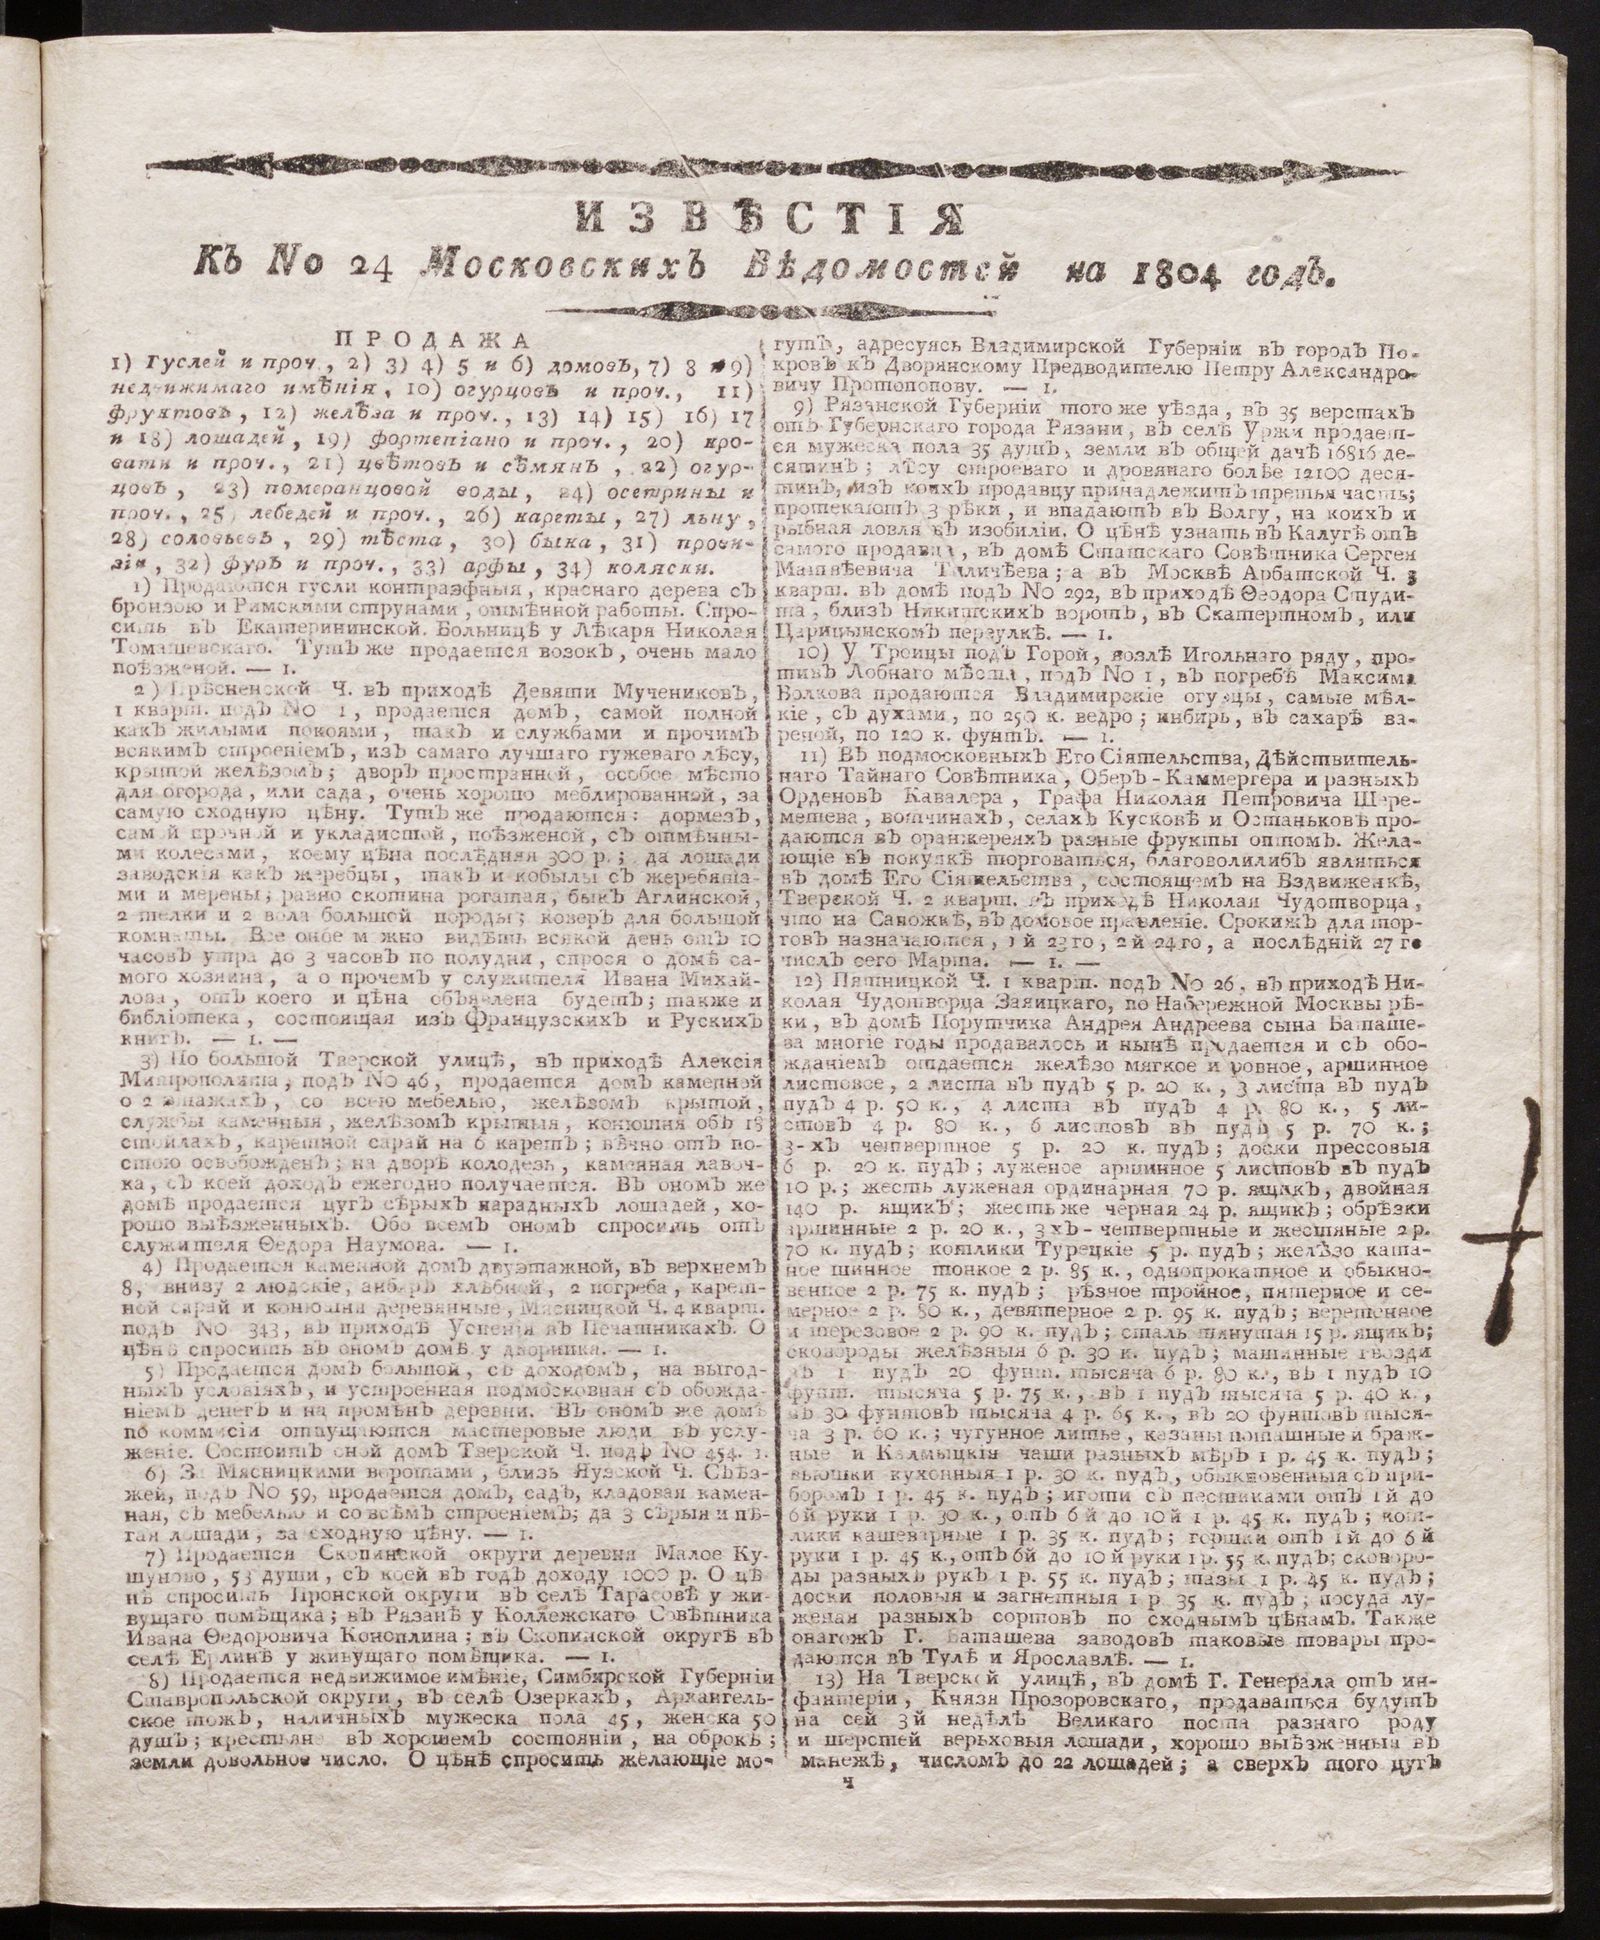 ИЗВѢСТІЯ
Къ No 24 Московскихъ Вѣдомостей на 1804 годъ.
ПРОДАЖА
1) Гуслей и проч., 2) 3) 4) 5 и 6) домовъ, 7) 8 и 9)
недвижимаго имѣнія, 10) огурцовъ и проч., 11)
фруктовъ, 12) желѣза и проч., 13) 14) 15) 16) 17
и 18) лошадей, 19) фортепіано и проч., 20) кро-
вати и проч., 21) цвѣтовъ и сѣмянъ, 22) огур-
цовъ, 23) померанцовой воды, 24) осетрины и
проч., 25) лебедей и проч., 26) кареты, 27) льну,
28) соловьевъ, 29) тѣста, 30) быка, 31) прови-
зіи, 32) фуръ и проч., 33) арфы, 34) коляски.
1) Продаются гусли контраэфныя, краснаго дерева съ
бронзою и Римскими струнами, отмѣнной работы. Спро-
сить въ Екатерининской Больницѣ у Лѣкаря Николая
Томашевскаго. Тутъ же продается возокъ, очень мало
поѣзженой. — 1.
2) Прѣсненской Ч. въ приходѣ Девяти Мучениковъ,
1 кварт. подъ No 1, продается домъ, самой полной
какъ жилыми покоями, такъ и службами и прочимъ
всякимъ строеніемъ, изъ самаго лучшаго гужеваго лѣсу,
крытой желѣзомъ; дворъ пространной, особое мѣсто
для огорода, или сада, очень хорошо меблированной, за
самую сходную цѣну. Тутъ же продаются: дормезъ,
самой прочной и укладистой, поѣзженой, съ отмѣнны-
ми колесами, коему цѣна послѣдняя 300 р.; да лошади
заводскія какъ жеребцы, такъ и кобылы съ жеребята-
ми и мерены; равно скотина рогатая, быкъ Аглинской,
2 телки и 2 вола большой породы; коверъ для большой
комнаты. Все оное можно видѣть всякой день отъ 10
часовъ утра до 3 часовъ по полудни, спрося о домѣ са-
мого хозяина, а о прочемъ у служителя Ивана Михай-
лова, отъ коего и цѣна объявлена будетъ; также и
библіотека, состоящая изъ Французскихъ и Рускихъ
книгъ. — 1. —
3) По большой Тверской улицѣ, въ приходѣ Алексія
Митрополита, подъ No 46, продается домъ каменной
о 2 этажахъ, со всею мебелью, желѣзомъ крытой,
службы каменныя, желѣзомъ крытыя, конюшня объ 18
стойлахъ, каретной сарай на 6 каретъ; вѣчно отъ по-
стою освобожденъ; на дворѣ колодезь, каменная лавоч-
ка, съ коей доходъ ежегодно получается. Въ ономъ же
домѣ продается цугъ сѣрыхъ нарадныхъ лошадей, хо-
рошо выѣзженныхъ. Обо всемъ ономъ спросить отъ
служителя Ѳедора Наумова. — 1.
4) Продается каменной домъ двуэтажной, въ верхнемъ
8, внизу 2 людскіе, анбаръ хлѣбной, 2 погреба, карет-
ной сарай и конюшня деревянные, Мясницкой Ч. 4 кварт.
подъ No 343, въ приходѣ Успенія въ Печатникахъ. О
цѣнѣ спросить въ ономъ домѣ у дворника. — 1.
5) Продается домъ большой, съ доходомъ, на выгод-
ныхъ условіяхъ, и устроенная подмосковная съ обожда-
ніемъ денегъ и на промѣнъ деревни. Въ ономъ же домѣ
по коммисіи отпущаются мастеровые люди въ услу-
женіе. Состоитъ оной домъ Тверской Ч. подъ No 454. 1.
6) За Мясницкими воротами, близь Яузской Ч. Съѣз-
жей, подъ No 59, продается домъ, садъ, кладовая камен-
ная, съ мебелью и со всѣмъ строеніемъ; да 3 сѣрыя и пѣ-
гая лошади, за сходную цѣну. — 1.
7) Продается Скопинской округи деревня Малое Ку-
шуново, 53 души, съ коей въ годъ доходу 1000 р. О цѣ
нѣ спросить Пронской округи въ селѣ Тарасовѣ у жи-
вущаго помѣщика; въ Рязанѣ у Коллежскаго Совѣтника
Ивана Ѳедоровича Коноплина; въ Скопинской округѣ въ
селѣ Ерлинѣ у живущаго помѣщика. — 1.
8) Продается недвижимое имѣніе, Симбирской Губерніи
Ставропольской округи, въ селѣ Озеркахъ, Архангель-
ское тожъ, наличныхъ мужеска пола 45, женска 50
душъ; крестьяне въ хорошемъ состояніи, на оброкѣ;
земли довольное число. О цѣнѣ спросить желающіе мо-
гутъ, адресуясь Владимирской Губерніи въ городъ По-
кровъ къ Дворянскому Предводителю Петру Александро-
вичу Протопопову. — 1.
9) Рязанской Губерніи того же уѣзда, въ 35 верстахъ
отъ Губернскаго города Рязани, въ селѣ Уржи продает-
ся мужеска пола 35 душъ, земли въ общей дачѣ 16816 де-
сятинъ; лѣсу строеваго и дровянаго болѣе 12100 деся-
тинъ, изъ коихъ продавцу принадлежитъ третья часть;
протекаютъ 3 рѣки, и впадаютъ въ Волгу, на коихъ и
рыбная ловля въ изобиліи. О цѣнѣ узнать въ Калугѣ отъ
самого продавца, въ домѣ Статскаго Совѣтника Сергея
Матвѣевича Тиличѣева; а въ Москвѣ Арбатской Ч. 3
кварт. въ домѣ подъ No 292, въ приходѣ Ѳеодора Студи-
та, близь Никитскихъ воротъ, въ Скатертномъ, или
Царицынскомъ переулкѣ. — 1.
10) У Троицы подъ Горой, возлѣ Игольнаго ряду, про-
тивъ Лобнаго мѣста, подъ No 1, въ погребѣ Максима
Волкова продаются Владимирскіе огурцы, самые мѣл-
кіе, съ духами, по 250 к. ведро; инбирь, въ сахарѣ ва-
реной, по 120 к. фунтъ. — 1.
11) Въ подмосковныхъ Его Сіятельства, Дѣйствитель-
наго Тайнаго Совѣтника, Оберъ-Каммергера и разныхъ
Орденовъ Кавалера, Графа Николая Петровича Шере-
метева, вотчинахъ, селахъ Кусковѣ и Останьковѣ про-
даются въ оранжереяхъ разные фрукты оптомъ. Жела-
ющіе въ покупкѣ торговаться, благоволилибъ являться
въ домѣ Его Сіятельства, состоящемъ на Вздвиженкѣ,
Тверской Ч. 2 кварт. въ приходѣ Николая Чудотворца,
что на Сапожкѣ, въ домовое правленіе. Срокижъ для тор-
говъ назначаются, 1й 23го, 2й 24го, а послѣдній 27 го
числъ сего Марта. — 1. —
12) Пятницкой Ч. 1 кварт. подъ No 26, въ приходѣ Ни-
колая Чудотворца Заяицкаго, по Набережной Москвы рѣ-
ки, въ домѣ Порутчика Андрея Андреева сына Баташе-
ва многіе годы продавалось и нынѣ продается и съ обо-
жданіемъ отдается желѣзо мягкое и ровное, аршинное
листовое, 2 листа въ пудъ 5 р. 20 к., 3 листа въ пудъ
пудъ 4 р. 50 к., 4 листа въ пудъ 4 р. 80 к., 5 ли-
стовъ 4 р. 80 к., 6 листовъ въ пудъ 5 р. 70 к.;
3-хъ четвертное 5 р. 20 к. пудъ; доски прессовыя
6 р. 20 к. пудъ; луженое аршинное 5 листовъ въ пудъ
10 р.; жесть луженая ординарная 70 р. ящикъ, двойная
140 р. ящикъ; жесть же черная 24 р. ящикъ; обрѣзки
аршинные 2 р. 20 к., 3 хъ-четвертные и жестяные 2 р.
70 к. пудъ; котлики Турецкіе 5 р. пудъ; желѣзо ката-
ное шинное тонкое 2 р. 85 к., однопрокатное и обыкно-
венное 2 р. 75 к. пудъ; рѣзное тройное, пятерное и се-
мерное 2 р. 80 к., девятерное 2 р. 95 к. пудъ; веретенное
и терезовое 2 р. 90 к. пудъ; сталь тянутая 15 р. ящикъ;
сковороды желѣзныя 6 р. 30 к. пудъ; машинные гвозди
въ 1 пудъ 20 фунт. тысяча 6 р. 80 к., въ 1 пудъ 10
фунт. тысяча 5 р. 75 к., въ 1 пудъ тысяча 5 р. 40 к.,
въ 30 фунтовъ тысяча 4 р. 65 к., въ 20 фунтовъ тыся-
ча 3 р. 60 к.; чугунное литье, казаны поташные и браж-
ные и Калмыцкія чаши разныхъ мѣръ 1 р. 45 к. пудъ;
вьюшки кухонныя 1 р. 30 к. пудъ, обыкновенныя съ при-
боромъ 1 р. 45 к. пудъ; иготи съ пестиками отъ 1й до
6й руки 1 р. 30 к., отъ 6й до 10й 1 р. 45 к. пудъ; кот-
лики кашеварные 1 р. 35 к. пудъ; горшки отъ 1й до 6 й
руки 1 р. 45 к., отъ 6й до 10 й руки 1 р. 55 к. пудъ; сковоро-
ды разныхъ рукъ 1 р. 55 к. пудъ; тазы 1 р. 45 к. пудъ;
доски половыя и загнетныя 1 р 35 к. пудъ; посуда лу-
женая разныхъ сортовъ по сходнымъ цѣнамъ. Также
онагожъ Г. Баташева заводовъ таковые товары про-
даются въ Тулѣ и Ярославлѣ. — 1.
13) На Тверской улицѣ, въ домѣ Г. Генерала отъ ин-
фантеріи, Князя Прозоровскаго, продаваться будутъ
на сей 3й недѣлѣ Великаго поста разнаго роду
и шерстей верьховыя лошади, хорошо выѣзженныя въ
манежѣ, числомъ до 22 лошадей; а сверхъ того цугъ
ч